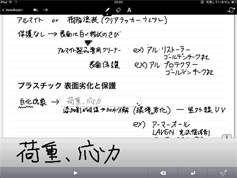 アルマイト or 樹脂塗装(クリアラッカー、ウレタン)
保護なし → 表面に白い粉状のさび
アルマイト製品専用クリーナー ex) アル・リストーラー
ゴールデンチークス
表面保護 ex) アル プロテクター
ゴールデンチークス
プラスチック 表面劣化と保護
白化現象 → 荷重、応力
(環境劣化) ― 紫外線 UV
ex) アーマーオール
荷重、応力